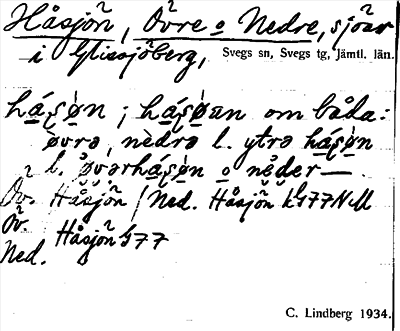 Håsjön, Övre o Nedre, sjöar
i Glissjöberg, Svegs sn, Svegs tg, Jämtl. län.
hásøn ; hásøan om båda:
øvrə, nèdrə l. ytrə hásøn
l. øvərhásøn o néder—
Öv. Håsjön / Ned. Håsjön
Öv.
Ned. Håsjön G77
C. Lindberg 1934.